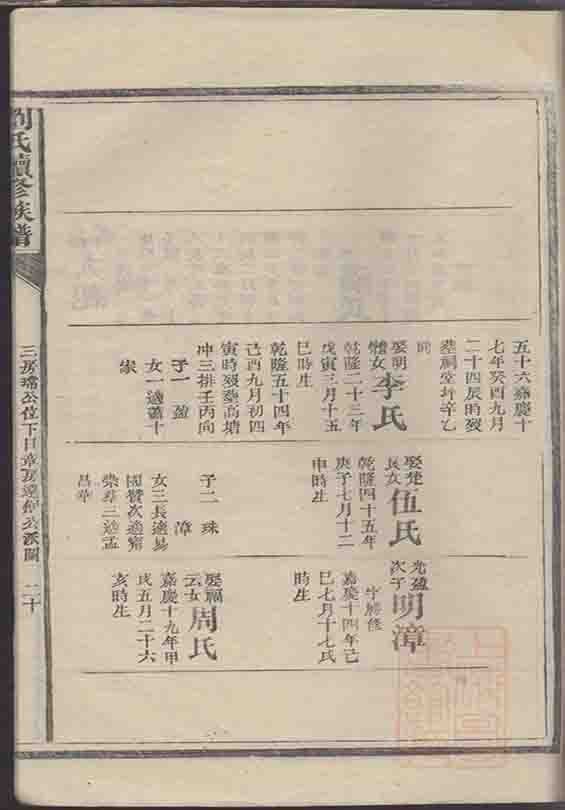 五十六嘉慶十
七年癸酉九月
二十四辰時歿
塟祠堂坪辛乙
向
娶朝
體女
李氏
乾隆二十三年
戊寅三月十五
巳時生
乾隆五十四年
己酉九月初四
寅時歿塟高塘
冲三排壬丙向
子一 盈
女一適蕭十
家
娶楚
良女
伍氏
乾隆四十五年
庚子七月十二
申時生
子二 珠
漳
女三長適易
國贊次適甯
榮華三適孟
昌華
光盈
次子
明漳
字勝修
嘉慶十四年己
巳七月十七氏
時生
娶福
云女
周氏
嘉慶十九年甲
戌五月二十六
亥時生
劉氏續修族譜
三房瑞公位下日章房達仰公派圖 二十